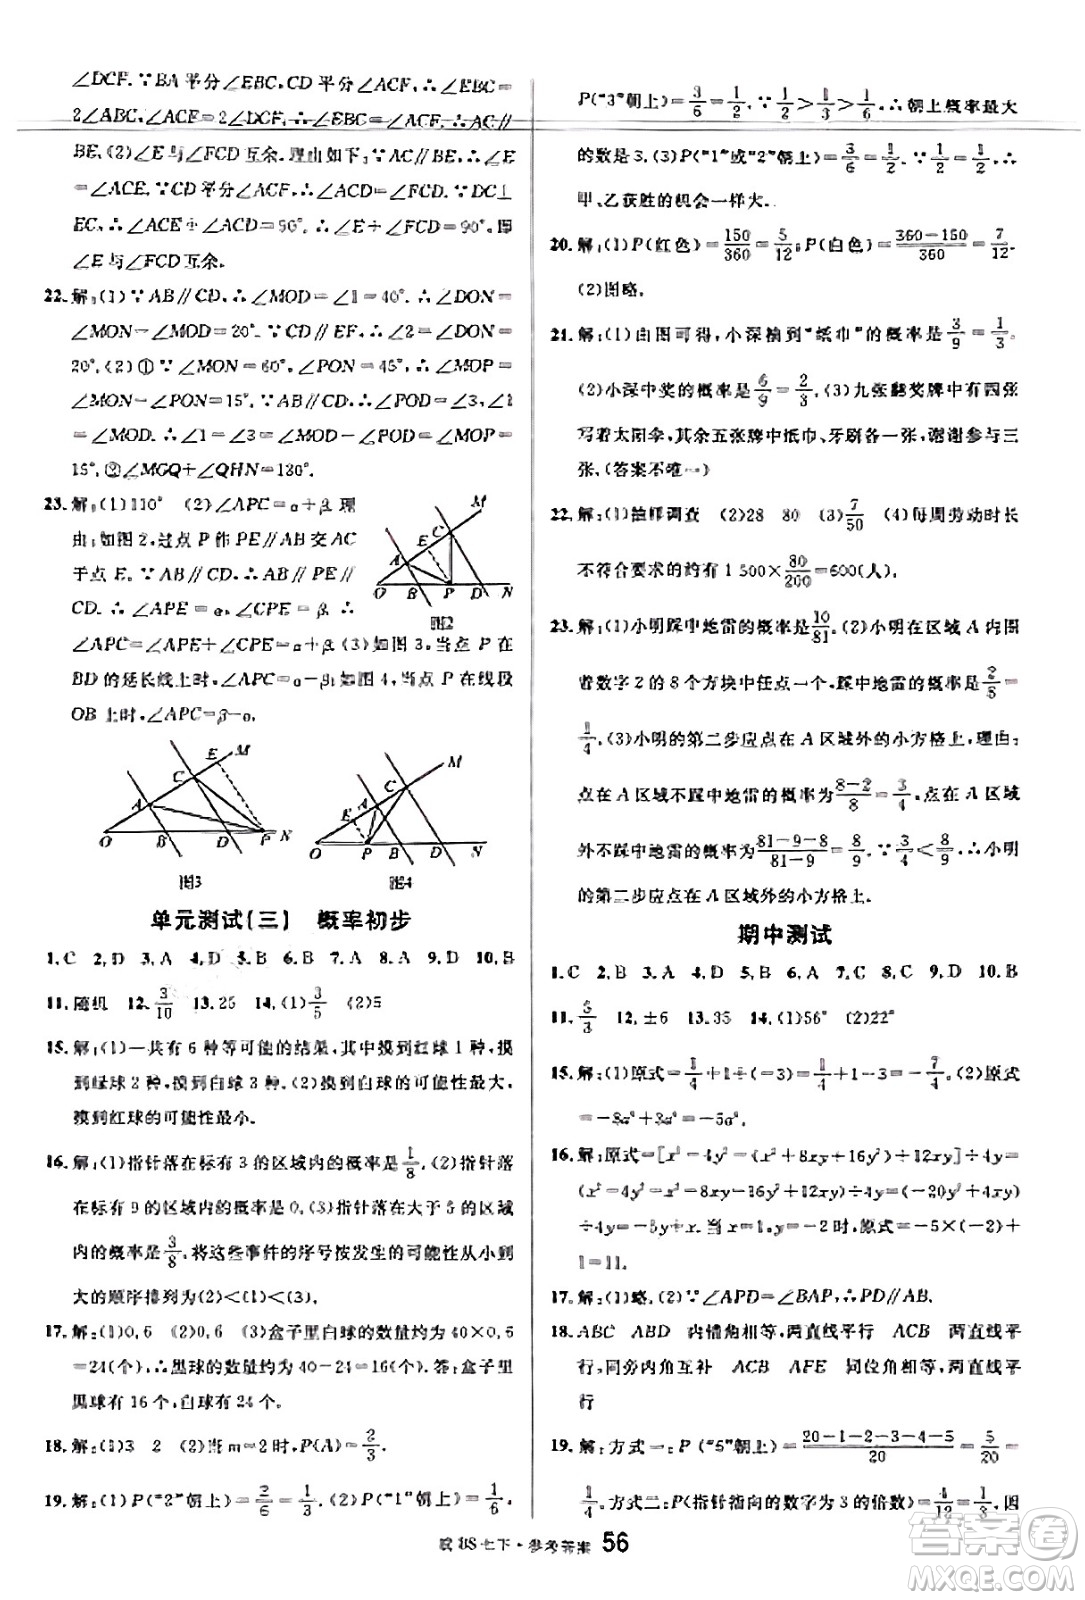 ∠DCF. ∵BA 平分∠EBC,CD 平分∠ACF,∴∠EBC=
2∠ABC,∠ACF=2∠DCF,∴∠EBC=∠ACF,∴AC∥
BE.(2)∠E 与∠FCD 互余.理由如下:∵AC∥BE,∴∠E
=∠ACE.∵CD 平分∠ACF,∴∠ACD=∠FCD.∵DC⊥
EC,∴∠ACE+∠ACD=90°,∴∠E+∠FCD=90°,即
∠E与∠FCD互余.
22.解:(1)∵AB∥CD,∴∠MOD=∠1=40°,∴∠DON=
∠MON-∠MOD=20°.∵CD∥EF,∴∠2=∠DON=
20°.(2)①∵∠MON=60°,∠PON=45°,∴∠MOP=
∠MON-∠PON=15°.∵AB∥CD,∴∠MOP=∠3,∠1
=∠MOD.∴∠1-∠3=∠MOD-∠POD=∠MOP=
15°.②∠MGQ+∠QHN=180°
23.解:(1)110° (2)∠APC=α+β.理
由:如图2,过点P作PE∥AB交AC
于点E.∵AB∥CD,∴AB∥PE∥
CD.∴∠APE=α,∠CPE=β,∴
∠APC=∠APE+∠CPE=α+β.(3)如图3,当点P在
BD的延长线上时,∠APC=α-β;如图4,当点P在线段
OB上时,∠APC=β-α.
M C E A O B P D N 图2
E M C A O B D P N 图3
M C A E O P B D N 图4
单元测试(三) 概率初步
1.C 2.D 3.A 4.D 5.B 6.D 7.C 8.A 9.D 10.B
11.随机 12.3/10 13.25 14.(1)3/5 (2)5
15.解:(1)一共有6种等可能的结果,其中摸到红球1种,摸
到绿球2种,摸到白球3种.(2)摸到白球的可能性最大,
摸到红球的可能性最小.
16.解:(1)指针落在标有3的区域内的概率是1/8.(2)指针落
在标有9的区域内的概率是0.(3)指针落在大于5的区域
内的概率是3/8,将这些事件的序号按发生的可能性从小到
大的顺序排列为(2)<(1)<(3).
17.解:(1)0.6 (2)0.6 (3)盒子里白球的数量约为40×0.6
=24(个),∴黑球的数量约为40-24=16(个).答:盒子里
黑球有16个,白球有24个.
18.解:(1)3 2 (2)当m=2时,P(A)=2/3.
19.解:(1)P("2"朝上)=2/6=1/3.(2)P("1"朝上)=1/6,
P("3"朝上)=3/6=1/2,∵1/2>1/3>1/6,∴朝上概率最大
的数是3.(3)P("1"或"2"朝上)=3/6=1/2,∵1/2=1/2,∴
甲、乙获胜的机会一样大.
20.解:(1)P(红色)=150/360=5/12;P(白色)=(360-150)/360=7/12.
(2)图略.
21.解:(1)由图可得,小深抽到"纸巾"的概率是3/9=1/3.
(2)小深中奖的概率是6/9=2/3.(3)九张翻奖牌中有四张
写着太阳伞,其余五张牌中纸巾、牙刷各一张,谢谢参与三
张.(答案不唯一)
22.解:(1)抽样调查 (2)28 80 (3)7/50 (4)每周劳动时长
不符合要求的约有1 500×80/200=600(人).
23.解:(1)小明踩中地雷的概率是10/81.(2)小明在区域A内围
着数字2的8个方块中任点一个,踩中地雷的概率是2/8=
1/4.(3)小明的第二步应点在A区域外的小方格上,理由:
点在A区域不踩中地雷的概率为(8-2)/8=3/4,点在A区域
外不踩中地雷的概率为(81-9-8)/(81-9)=8/9.∵3/4<8/9,∴小明
的第二步应点在A区域外的小方格上.
期中测试
1.C 2.B 3.A 4.C 5.D 6.D 7.A 8.A 9.C 10.B
11.5/3 12.±6 13.35 14.(1)56° (2)22°
15.解:(1)原式=1/4+1÷1-(-3)... (2)原式
=-8a⁶+3a⁶=-5a⁶.
16.解:原式=[x²-4y²-(x²-8xy+16y²)]÷4y=
(x²-4y²-x²+8xy-16y²)÷4y=(-20y²+8xy)
÷4y=-5y+2x,当
1=11.
17.解:(1)略.(2)∵∠APD=∠BAP,∴PD∥AB.
18.ABC ABD 内错角相等,两直线平行 ACB 两直线平
行,同旁内角互补 ACB AFE 同位角相等,两直线平
行
19.解:方式一:P("5"朝上)=(20-1-2-3-4-5)/20=5/20=
1/4.方式二:P(指针指向的数字为3的倍数)=4/12=1/3,因
皖 BS·七下·参考答案 56
答案圈
MXQE.COM